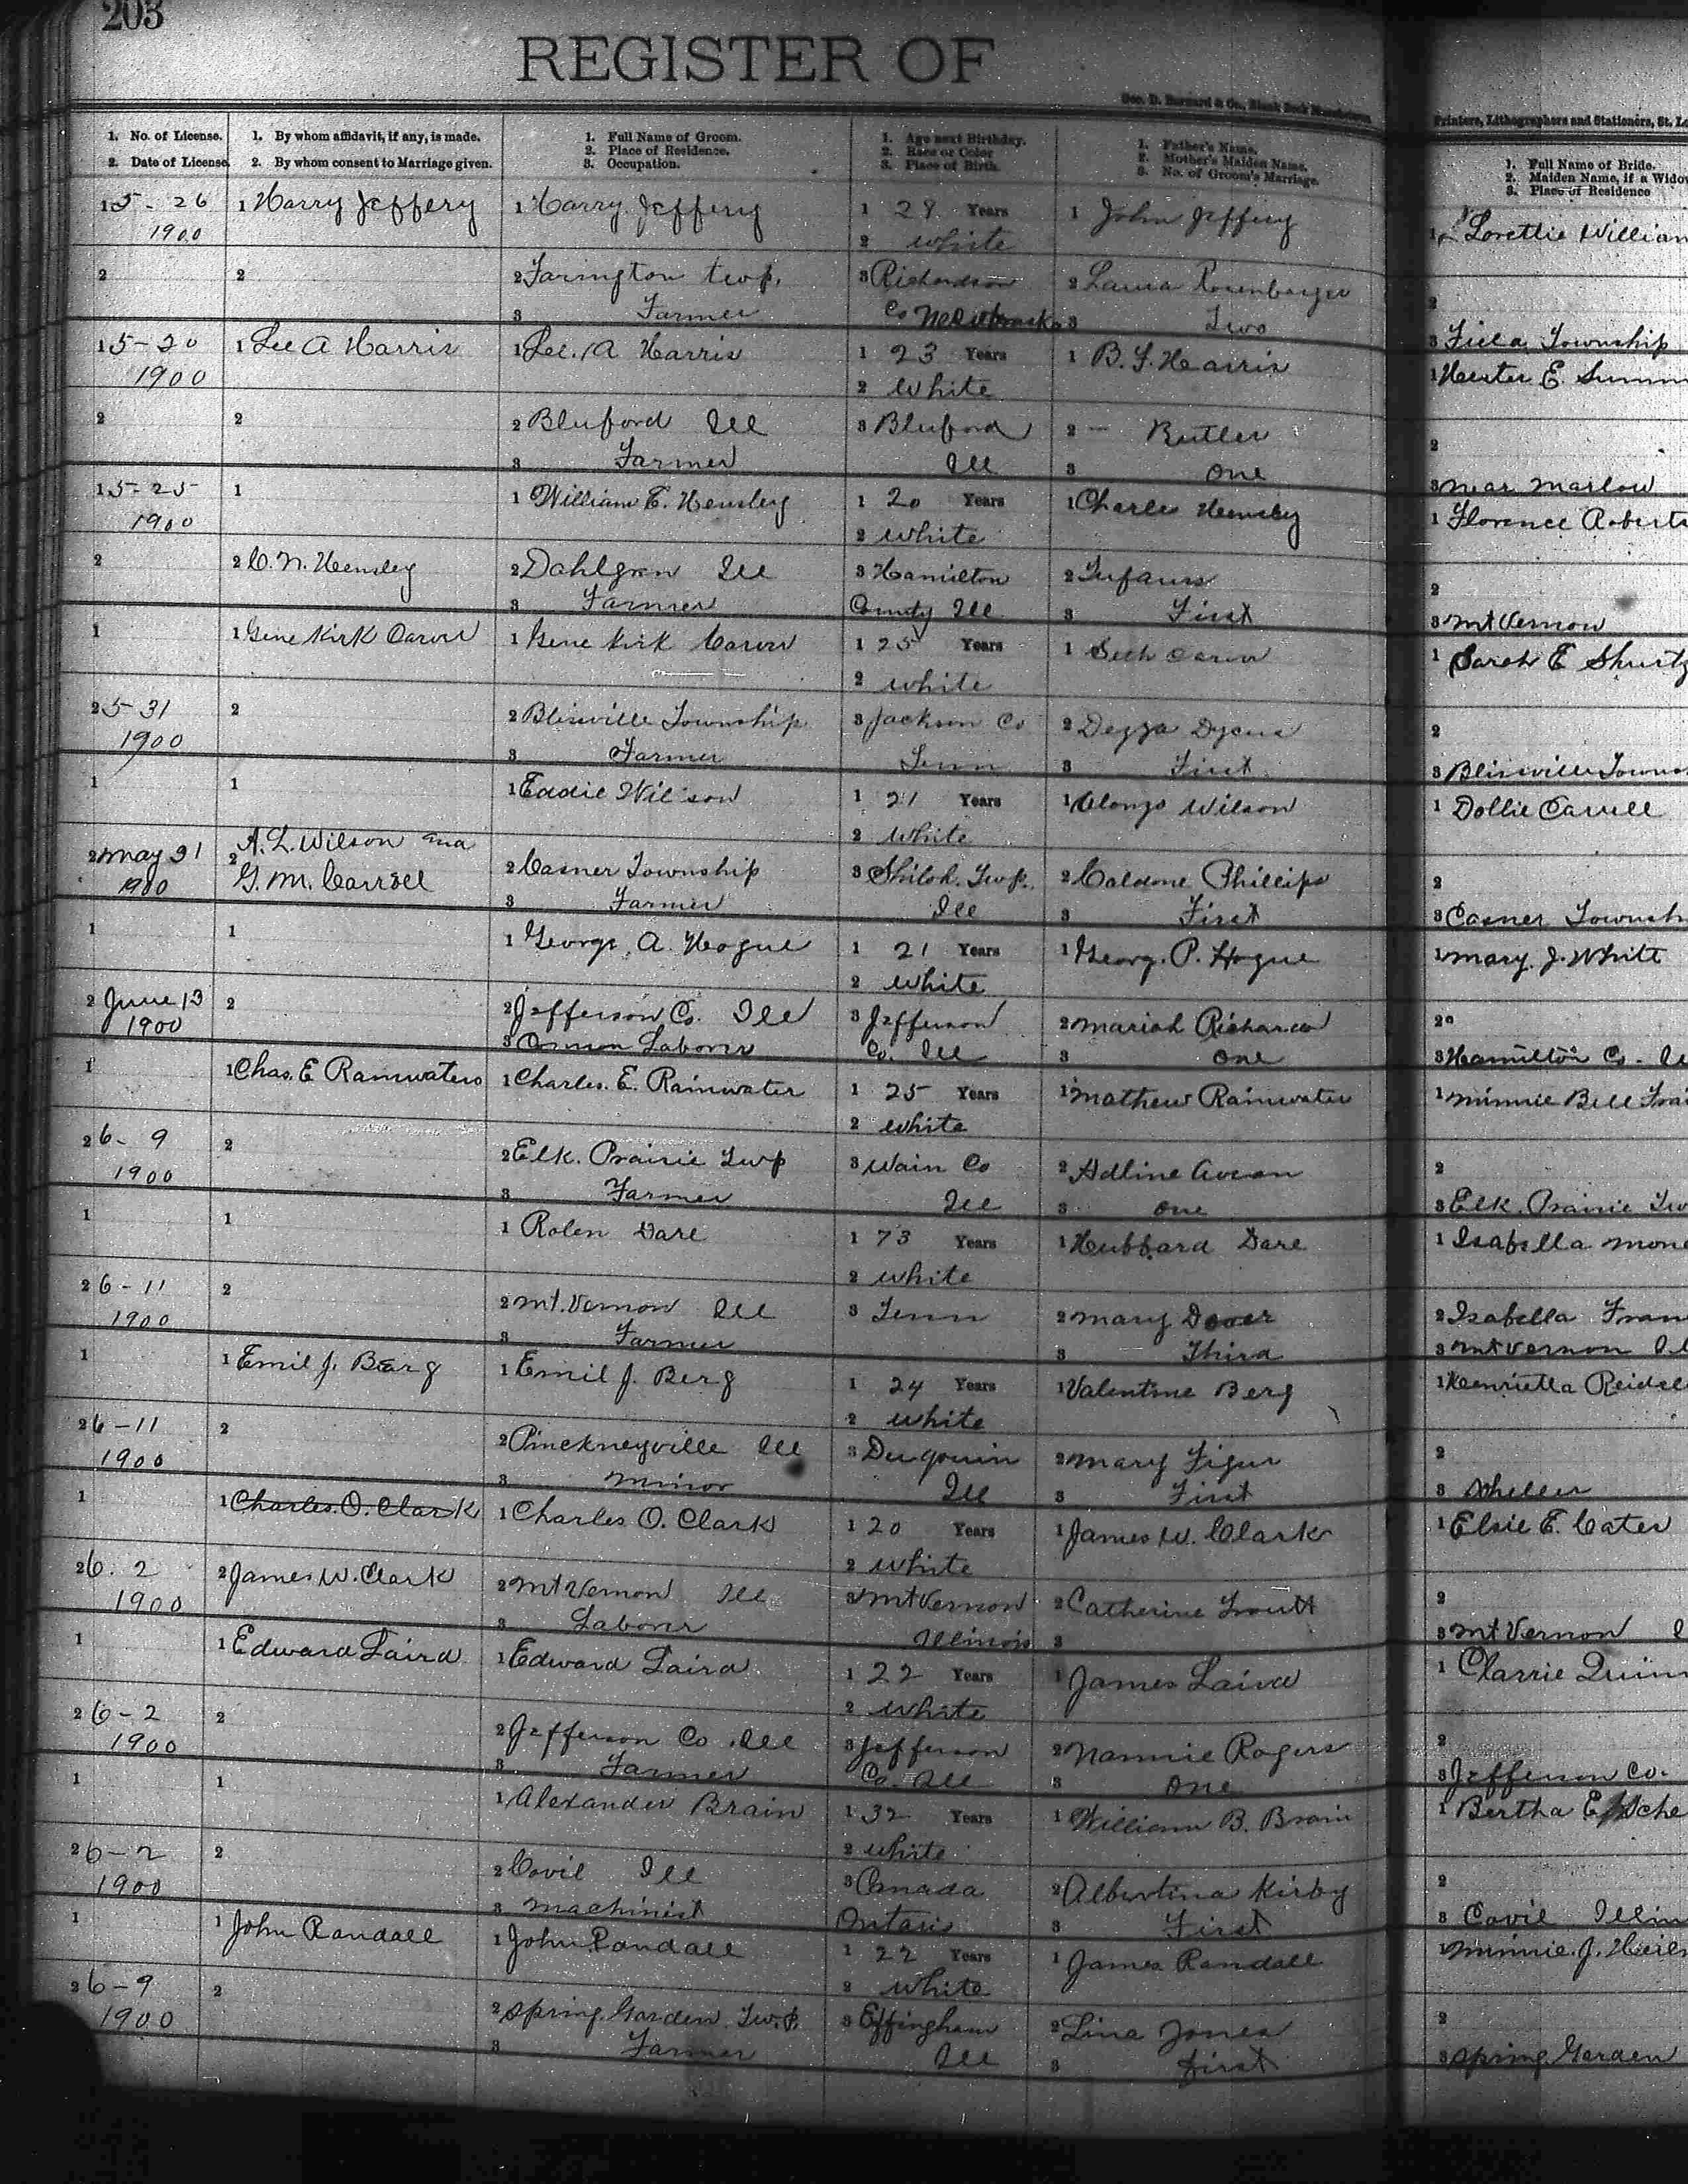 203
REGISTER OF
Geo. D. Barnard & Co., Blank Book Manufacturers
Printers, Lithographers and Stationers, St. Lo
1. No. of License.
2. Date of License.
1. By whom affidavit, if any, is made.
2. By whom consent to Marriage given.
1. Full Name of Groom.
2. Place of Residence.
3. Occupation.
1. Age next Birthday.
2. Race or Color
3. Place of Birth.
1. Father's Name.
2. Mother's Maiden Name.
3. No. of Groom's Marriage.
1. Full Name of Bride.
2. Maiden Name, if a Widow
3. Place of Residence
1 5-26 1 Harry Jeffery 1 Harry Jeffery 1 28 Years 1 John Jeffery 1 Lorettie William
1900 2 white
2 2 2 Farington twp. 3 Richardson 2 Laura Rosenbarger 2
3 Farmer Co Nebraska 3 Two 3 Field Township
1 5-20 1 Lee A Harris 1 Lee. A Harris 1 23 Years 1 B. F. Harris 1 Hester E. Summ
1900 2 White
2 2 2 Bluford Ill 3 Bluford 2 - Butler 2
3 Farmer Ill 3 One 3 near Marlow
1 5-25 1 1 William E. Hensley 1 20 Years 1 Charles Hensley 1 Florence Roberts
1900 2 White
2 2 C. N. Hensley 2 Dahlgren Ill 3 Hamilton 2 2
3 Farmer County Ill 3 First 3 Mt Vernon
1 1 Gene Kirk Carver 1 Gene Kirk Carver 1 25 Years 1 Seth Carver 1 Sarah E Shurtz
2 white
2 5-31 2 2 Blissville Township 3 Jackson Co 2 Dezza Dycus 2
1900 3 Farmer Tenn 3 First 3 Blissville Towns
1 1 1 Eddie Wilson 1 21 Years 1 Alonzo Wilson 1 Dollie Carrell
A. L. Wilson and 2 White
2 May 31 2 G. M. Carroll 2 Casner Township 3 Shiloh Twp. 2 Caldone Phillips 2
1900 3 Farmer Ill 3 First 3 Casner Townsh
1 1 1 George A. Hogue 1 21 Years 1 Georg. P. Hogue 1 Mary J. White
2 white
2 June 13 2 2 Jefferson Co. Ill 3 Jefferson 2 Mariah Richard 2
1900 3 Common Laborer Co. Ill 3 One 3 Hamilton Co. Il
1 1 Chas. E Rainwaters 1 Charles. E. Rainwater 1 25 Years 1 Mathew Rainwater 1 Minnie Bell
2 white
2 6-9 2 2 Elk. Prairie Twp 3 Wain Co 2 Adline 2
1900 3 Farmer Ill 3 one 3 Elk. Prairie Tw
1 1 1 Rolen Dare 1 73 Years 1 Hubbard Dare 1 Isabella Mone
2 white
2 6-11 2 2 Mt. Vernon Ill 3 Tenn 2 Mary Dover 2 Isabella Fran
1900 3 Farmer 3 Third 3 Mt Vernon Il
1 1 Emil J. Barg 1 Emil J. Berg 1 24 Years 1 Valentine Berg 1 Henrietta Reidel
2 white
2 6-11 2 2 Pinckneyville Ill 3 Duquoin 2 Mary Figur 2
1900 3 Minor Ill 3 First 3 Sheller
1 1 Charles. O. Clark 1 Charles O. Clark 1 20 Years 1 James W. Clark 1 Elsie E. Cater
2 white
2 6. 2 2 James W. Clark 2 Mt Vernon Ill 3 Mt Vernon 2 Catherine Troutt 2
1900 3 Laborer Illinois 3 3 Mt Vernon I
1 1 Edward Laird 1 Edward Laird 1 22 Years 1 James Laird 1 Clarrie Quinn
2 White
2 6-2 2 2 Jefferson Co. Ill 3 Jefferson 2 Nannie Rogers 2
1900 3 Farmer Co. Ill 3 One 3 Jefferson Co.
1 1 1 Alexander Brain 1 32 Years 1 William B. Brain 1 Bertha E.
2 white
2 6-2 2 2 Covil Ill 3 Canada 2 Albertina Kirby 2
1900 3 Machinist Ontario 3 First 3 Covil Illin
1 1 John Randall 1 John Randall 1 22 Years 1 James Randall 1 Minnie. J.
2 white
2 6-9 2 2 Spring Garden Twp. 3 Effingham 2 Lina Jones 2
1900 3 Farmer Ill 3 first 3 Spring Garden